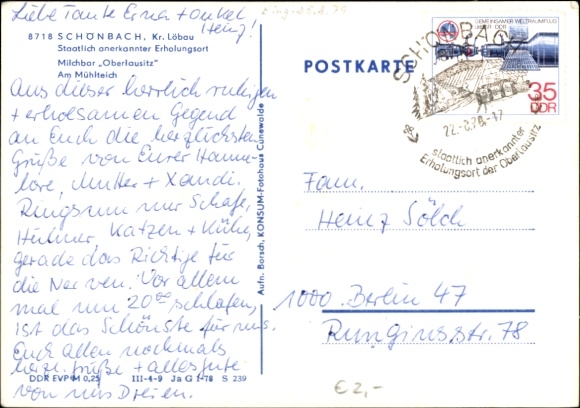 Liebe Tante Erna + Onkel
Heinz!
8718 SCHÖNBACH, Kr. Löbau
Staatlich anerkannter Erholungsort
Milchbar „Oberlausitz"
Am Mühlteich
Aus dieser herrlich ruhigen
+ erholsamen Gegend
an Euch die herzlichsten
Grüße von Eurer Hanne-
lore, Mutter + Xandi.
Ringsum nur Schafe,
Hühner, Katzen + Kühe,
gerade das Richtige für
die Nerven. Vor allem
mal um 20⁰⁰ schlafen,
ist das Schönste für uns.
Euch allen nochmals
herzl. Grüße + alles Gute
von uns Dreien.
DDR EVP M 0,25 III-4-9 Ja G 1-78 S 239
Aufn. Borsch, KONSUM-Fotohaus Cunewalde
POSTKARTE
GEMEINSAMER WELTRAUMFLUG
UdSSR DDR
35
DDR
SCHÖNBACH
22.-8.78-17
staatlich anerkannter
Erholungsort der Oberlausitz
Fam.
Heinz Sölch
1000 Berlin 47
Rungiusstr. 78
€ 2,-